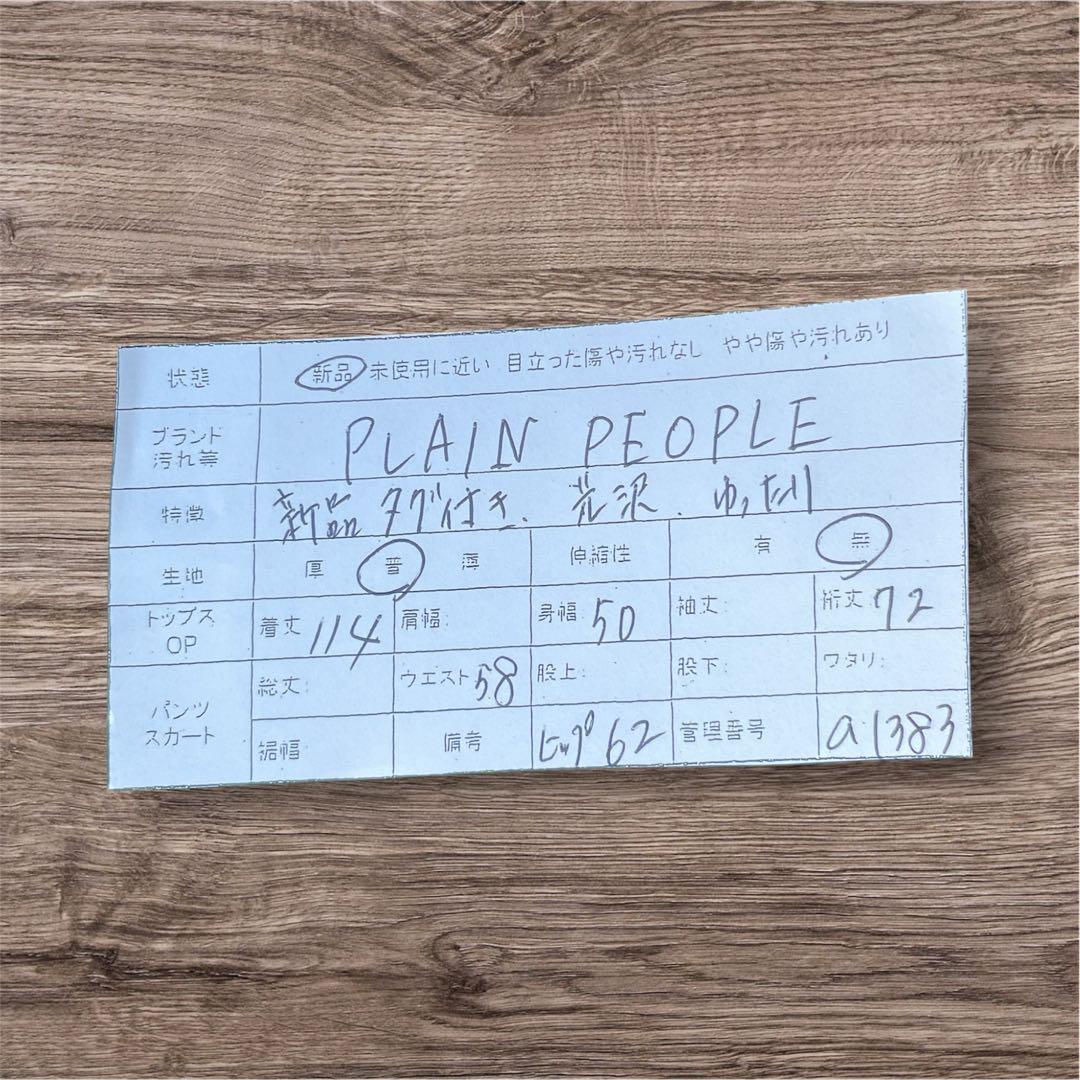 状態 新品 未使用に近い 目立った傷や汚れなし やや傷や汚れあり
ブランド 汚れ等 PLAIN PEOPLE
特徴 新品タグ付き、光沢、ゆったり
生地 厚 普 薄 伸縮性 有 無
トップス OP 着丈 114 肩幅: 身幅: 50 袖丈: 裄丈: 72
パンツ スカート 総丈: ウエスト 58 股上: 股下: ワタリ:
裾幅: 備考 ヒップ 62 管理番号 a1383